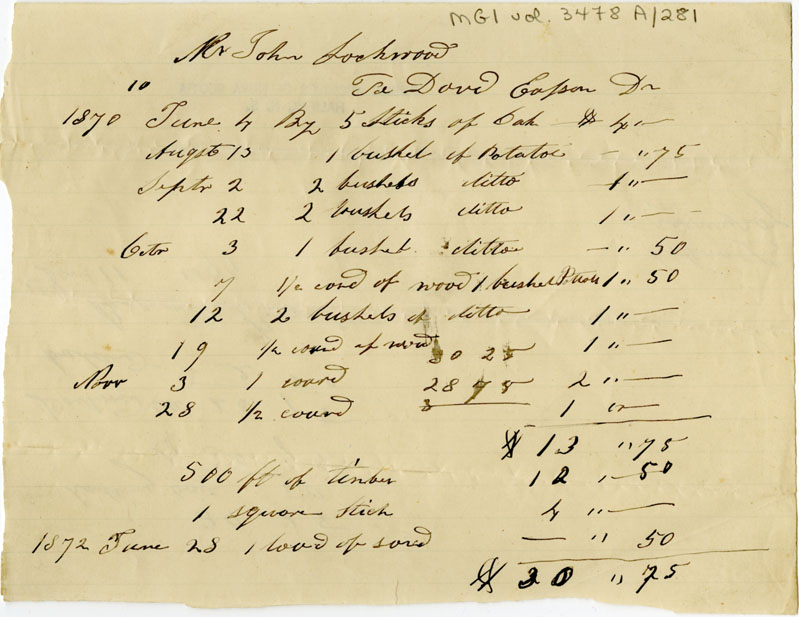 MG1 vol. 3478 A/281
Mr John Lockwood
10 To David Eason Dr
1870 June 4 By 5 Sticks of Oak $ 4 "—
Augst 13 1 bushel of Potatoe — " 75
Septr 2 2 bushels ditto 1 "—
22 2 bushels ditto 1 "—
Octr 3 1 bushel ditto — " 50
7 1/2 cord of wood 1 bushel 1 " 50
12 2 bushels of ditto 1 "—
19 1/2 courd of wood 1 "—
30 25
Nov 3 1 courd 28 75 2 "—
28 1/2 courd 1 "—
$ 13 " 75
500 ft of timber 12 " 50
1 square stick 4 "—
1872 June 28 1 load of — " 50
$ 30 " 75